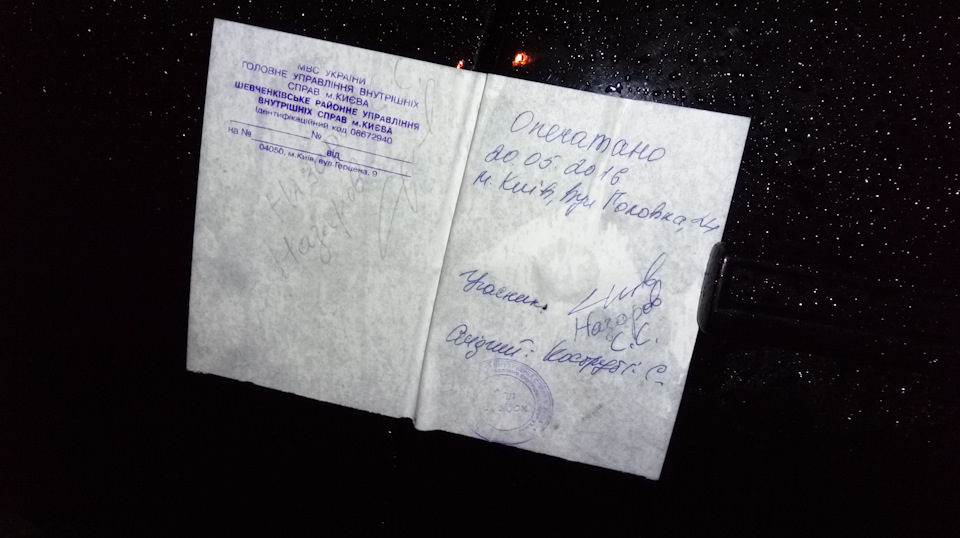 МВС УКРАЇНИ
ГОЛОВНЕ УПРАВЛІННЯ ВНУТРІШНІХ
СПРАВ м.КИЄВА
ШЕВЧЕНКІВСЬКЕ РАЙОННЕ УПРАВЛІННЯ
ВНУТРІШНІХ СПРАВ м.КИЄВА
Ідентифікаційний код 08672940
№
на № від
04050, м.Київ, вул.Герцена, 9
Опечатано
20.05.2016
м. Київ, вул Половка, 24
Учасник.
Назаров
С.С.
Слідчий: Кострубі С.